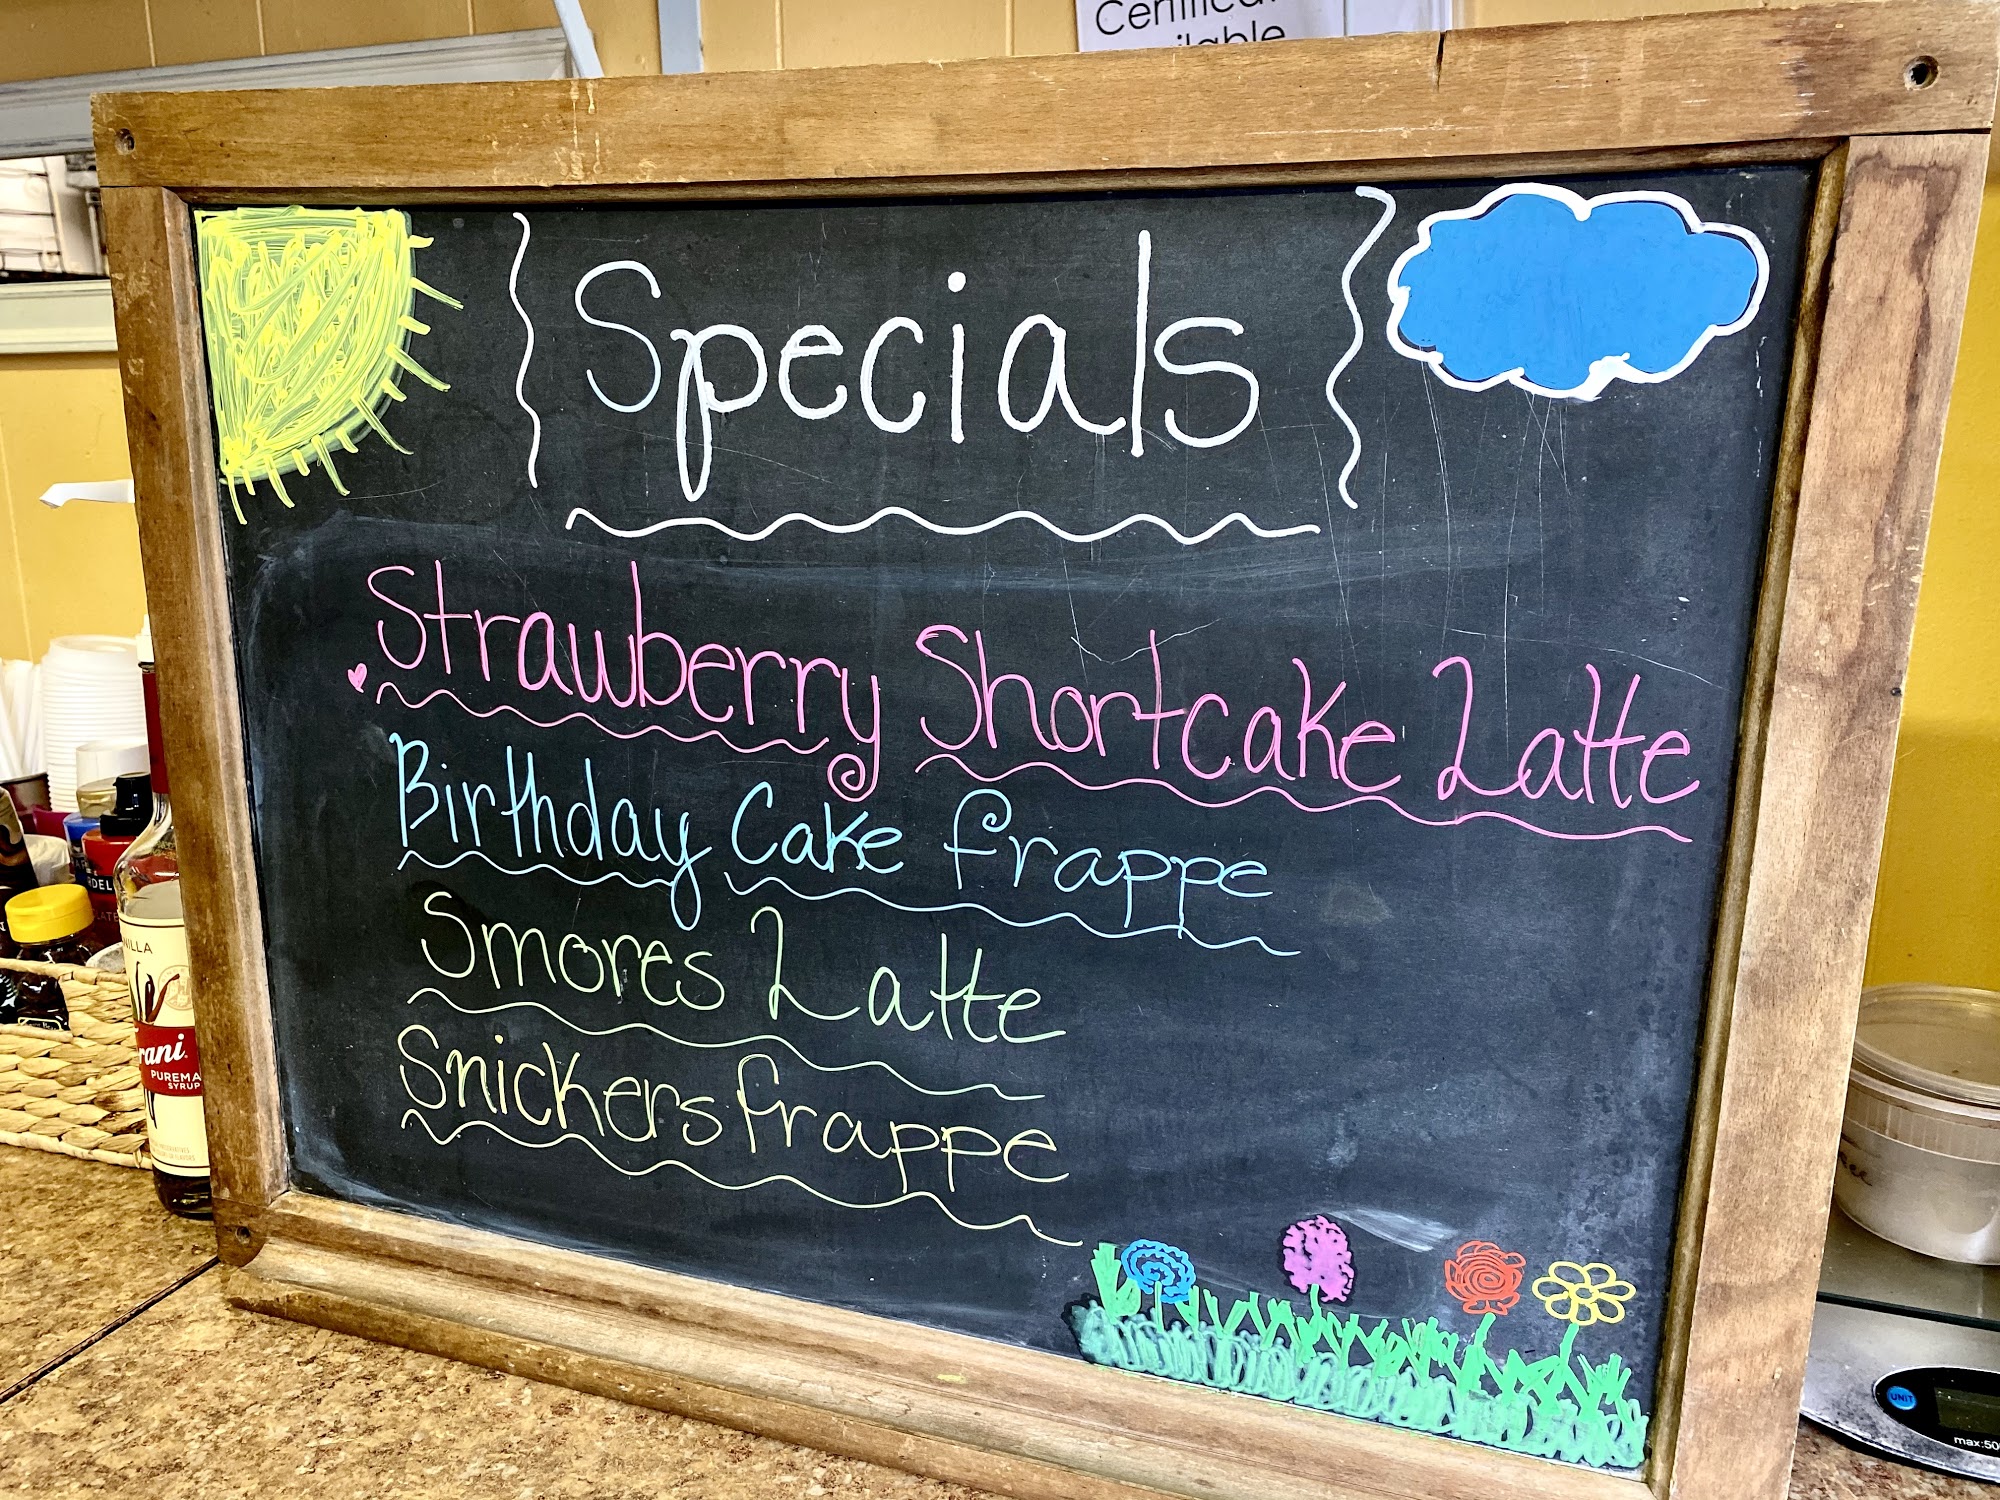 Available
Specials
Strawberry Shortcake Latte
Birthday Cake frappe
Smores Latte
Snickers frappe
PUREMA
SYRUP
UNIT
max:50